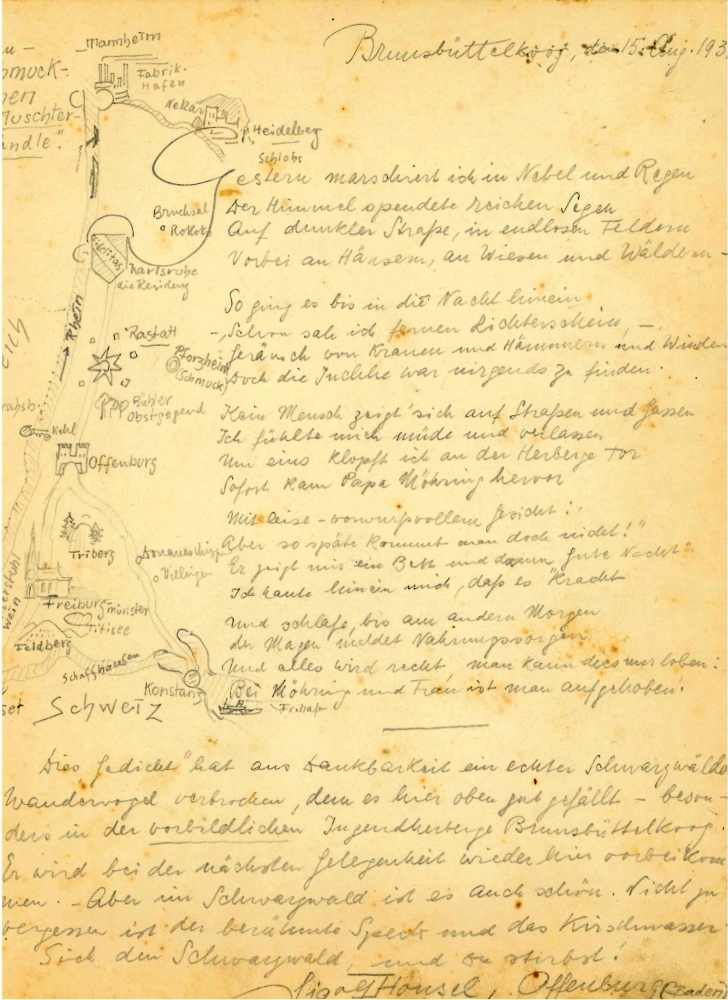 Brunsbüttelkoog, den 15. Aug. 193
Mannheim
Fabrik-
Hafen
Nekar
Heidelberg
Schloss
Bruchsal
Karlsruhe
die Residenz
Rhein
Rastatt
Pforzheim
Schmuck
Bühler
Obstgegend
Kehl
Offenburg
Triberg
Donaueschingen
Villingen
Freiburg
Münster
Titisee
Feldberg
Schaffhausen
Konstanz
Schweiz
wein
Gestern marschiert ich in Nebel und Regen
Der Himmel spendete reichen Segen
Auf dunkler Straße, in endlosen Feldern
Vorbei an Häusern, an Wiesen und Wäldern –
So ging es bis in die Nacht hinein
Schon sah ich fernen Lichterschein, –
Geräusch von Kranen und Hämmern und Winden
Doch die Juchhe war nirgends zu finden.
Kein Mensch zeigt sich auf Straßen und Gassen
Ich fühlte mich müde und verlassen
Um eins klopft ich an der Herberge Tor
Sofort kam Papa Möhring hervor
Mit leise-vorwurfsvollem Gesicht:
Aber so späte kommt man doch nicht!"
Er zeigt mir ein Bett und dann "Gute Nacht"
Ich haute hinein mich, daß es kracht
Und schlafe, bis am andern Morgen
der Magen meldet Nahrungssorgen
Und alles wird recht man kann dies nur loben:
Bei Möhring und Frau ist man aufgehoben!
Dies "Gedicht" hat aus Dankbarkeit ein echter Schwarzwälder
Wandervogel verbrochen, dem es hier oben gut gefällt – beson-
ders in der vorbildlichen Jugendherberge Brunsbüttelkoog.
Er wird bei der nächsten Gelegenheit wieder hier vorbeikom
men. – Aber im Schwarzwald ist es auch schön. Nicht zu
vergessen ist der berühmte Speck und das Kirschwasser
Sieh den Schwarzwald, und du stirbst!
Offenburg